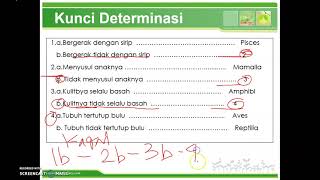 Kunci Determinasi
1.a.Bergerak dengan sirip ........ Pisces
b.Bergerak tidak dengan sirip ........ 2
2.a.Menyusui anaknya ........ Mamalia
b.Tidak menyusui anaknya ........ 3
3.a.Kulitbya selalu basah ........ Amphibi
b.Kulitnya tidak selalu basah ........ 4
4.a.Tubuh tertutup bulu ........ Aves
b. Tubuh tidak tertutup bulu ........ Reptilia
Kagal
1b - 2b - 3b - 9
RECORDED WITH
SCREENCASTOMATIC